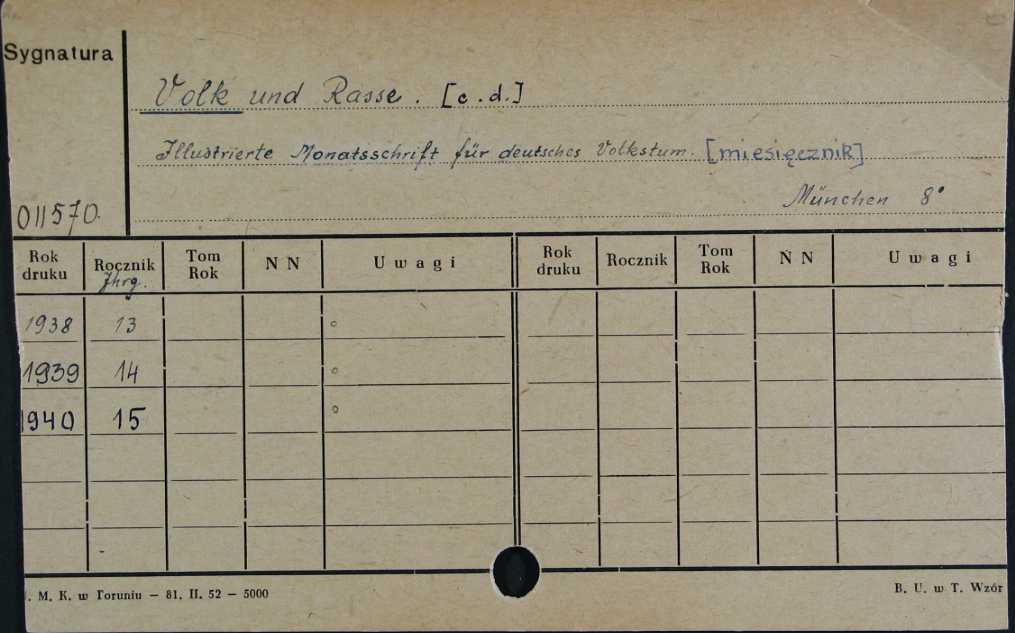 Sygnatura
Volk und Rasse. [c.d.]
Illustrierte Monatsschrift für deutsches Volkstum. [miesięcznik]
München 8°
011570.
Rok druku Rocznik Jhrg. Tom Rok N N Uwagi Rok druku Rocznik Tom Rok N N Uwagi
1938 13 °
1939 14 °
1940 15 °
. M. K. w Toruniu – 81. II. 52 – 5000
B. U. w T. Wzór